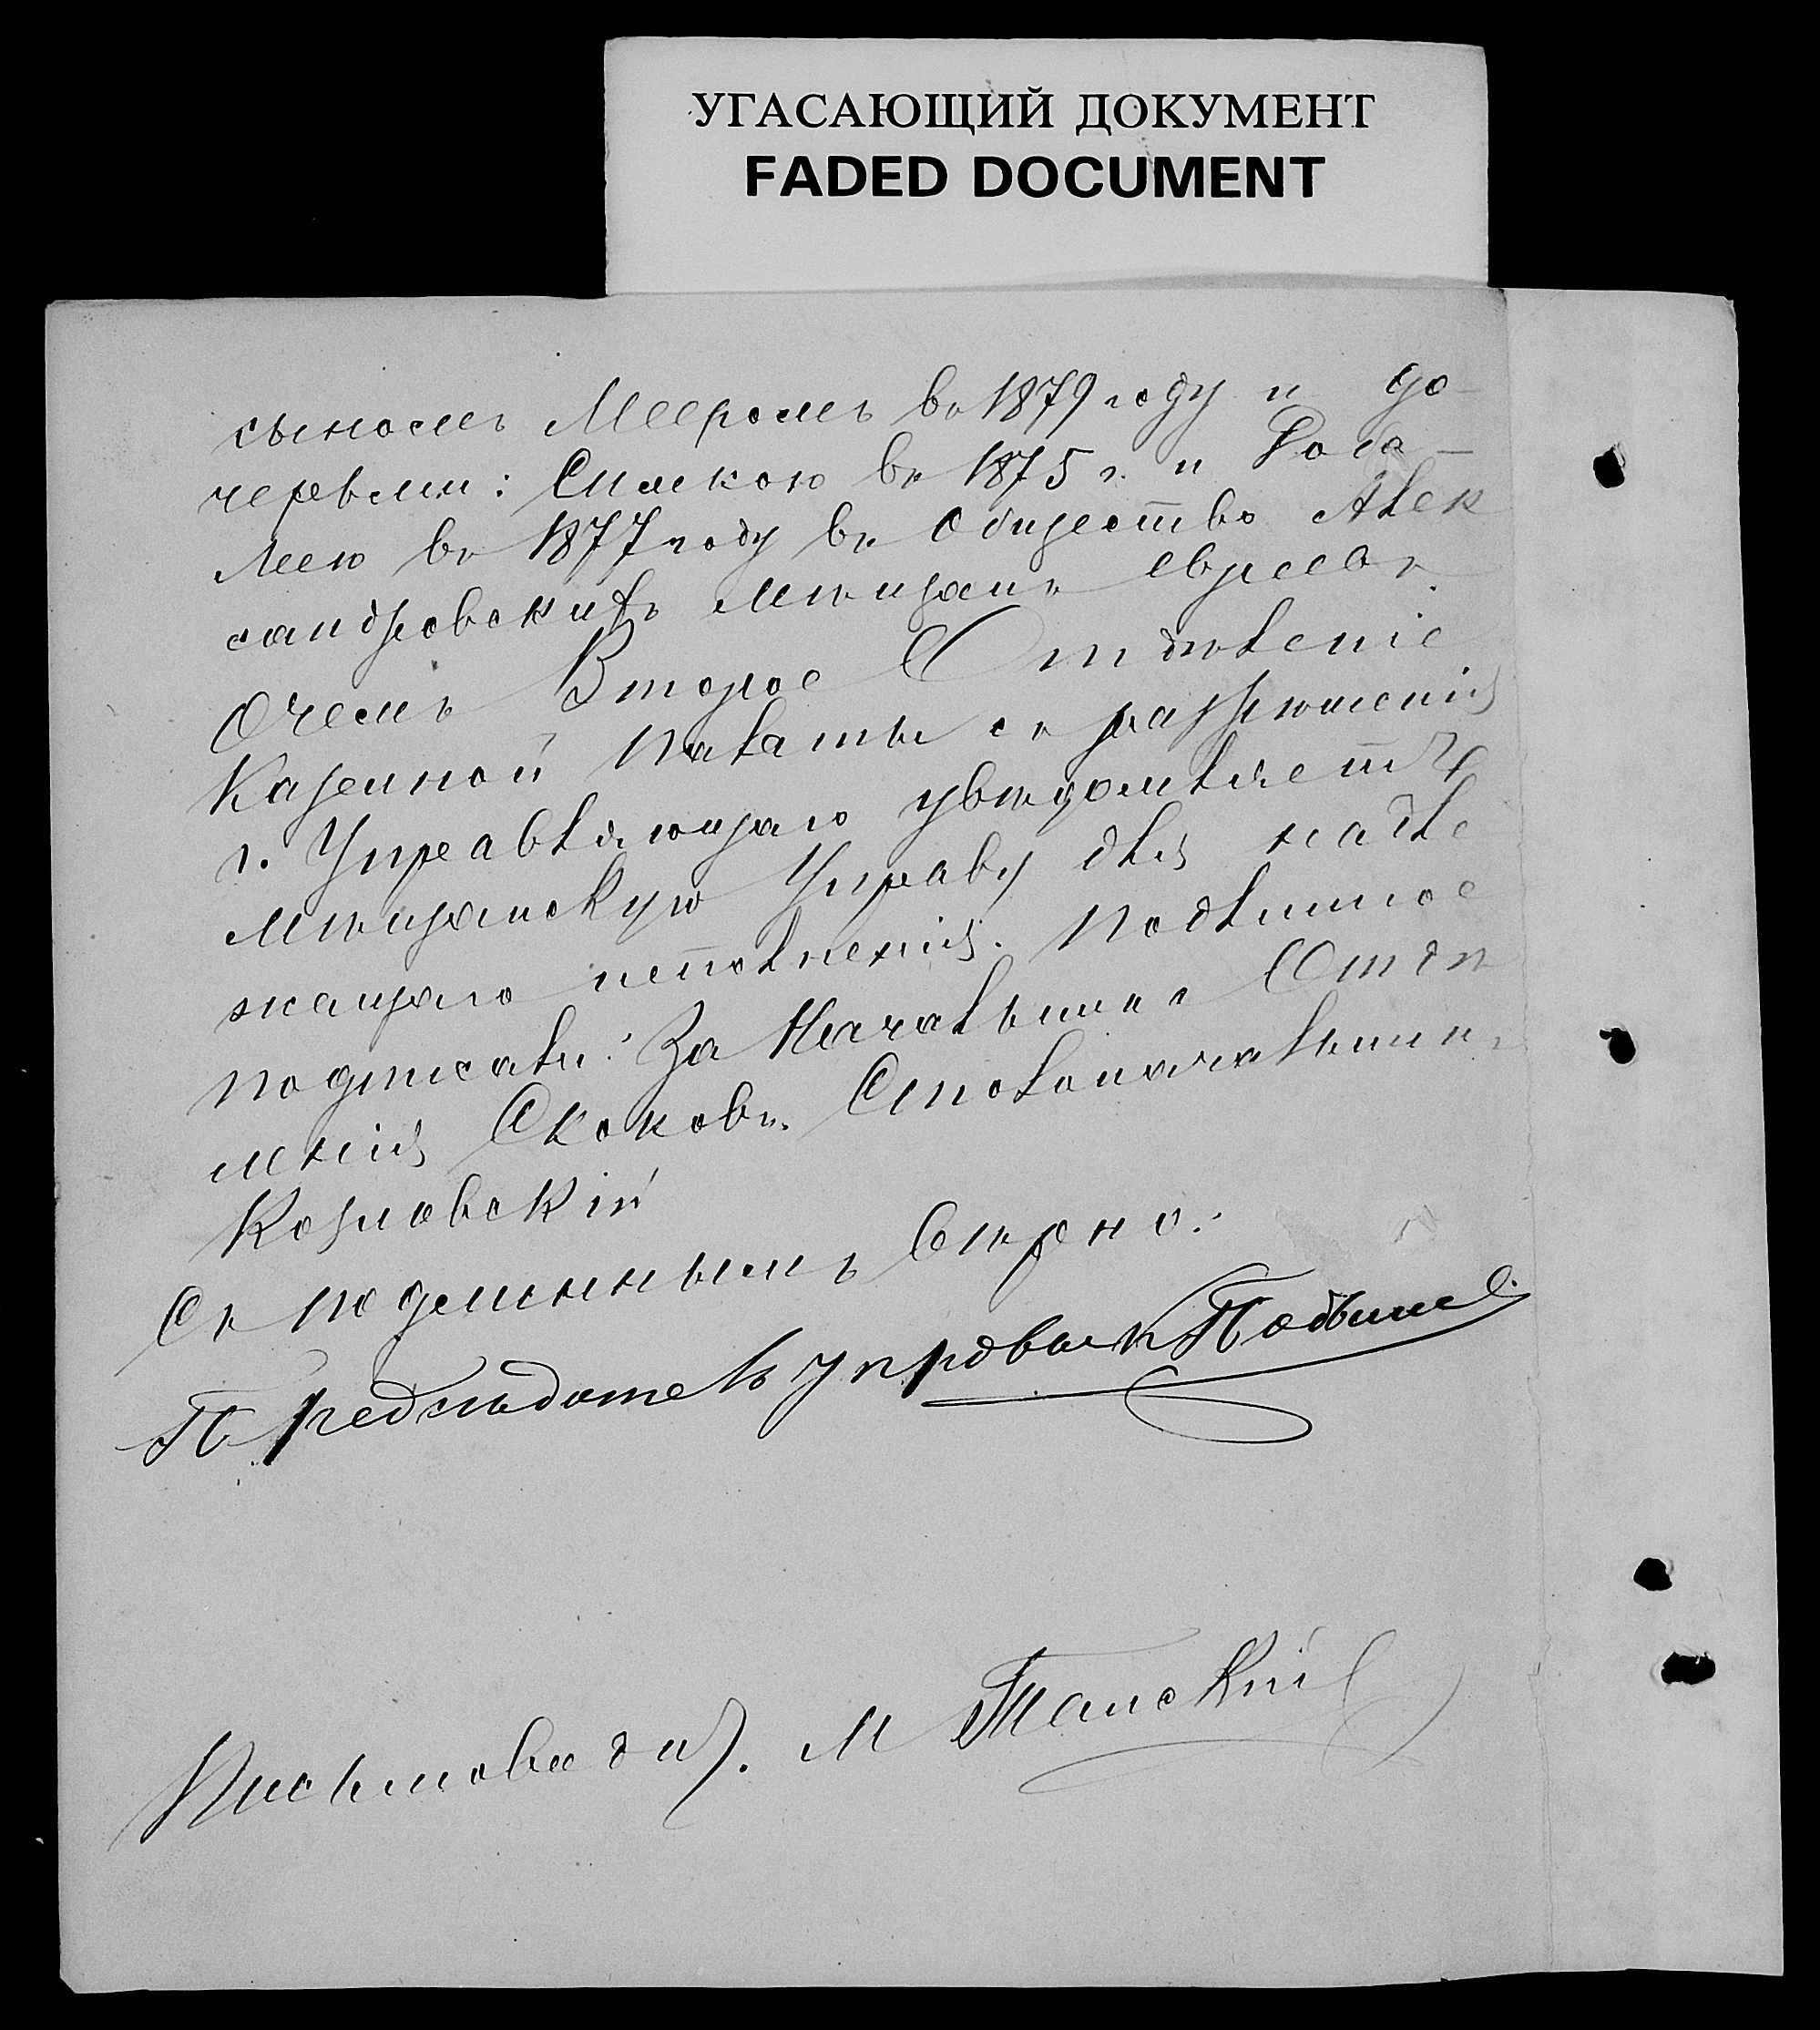 УГАСАЮЩИЙ ДОКУМЕНТ
FADED DOCUMENT
сыномъ Мееромъ въ 1879 году и до-
черьми: Симкою въ 1875 г. и
въ 1877 году въ общество Алек
сандровскихъ мѣщанъ евреевъ.
О чемъ Второе Отдѣленіе
Казенной Палаты съ разрѣшенія
г. Управляющаго увѣдомляетъ
мѣщанскую Управу для надле
жащаго исполненія. Подлинное
подписали: За Начальника Отдѣ
ленія Скоковъ. Столоначальникъ
Козловскій
Съ подлиннымъ вѣрно:
Предсѣдатель управы
Письмовод. М